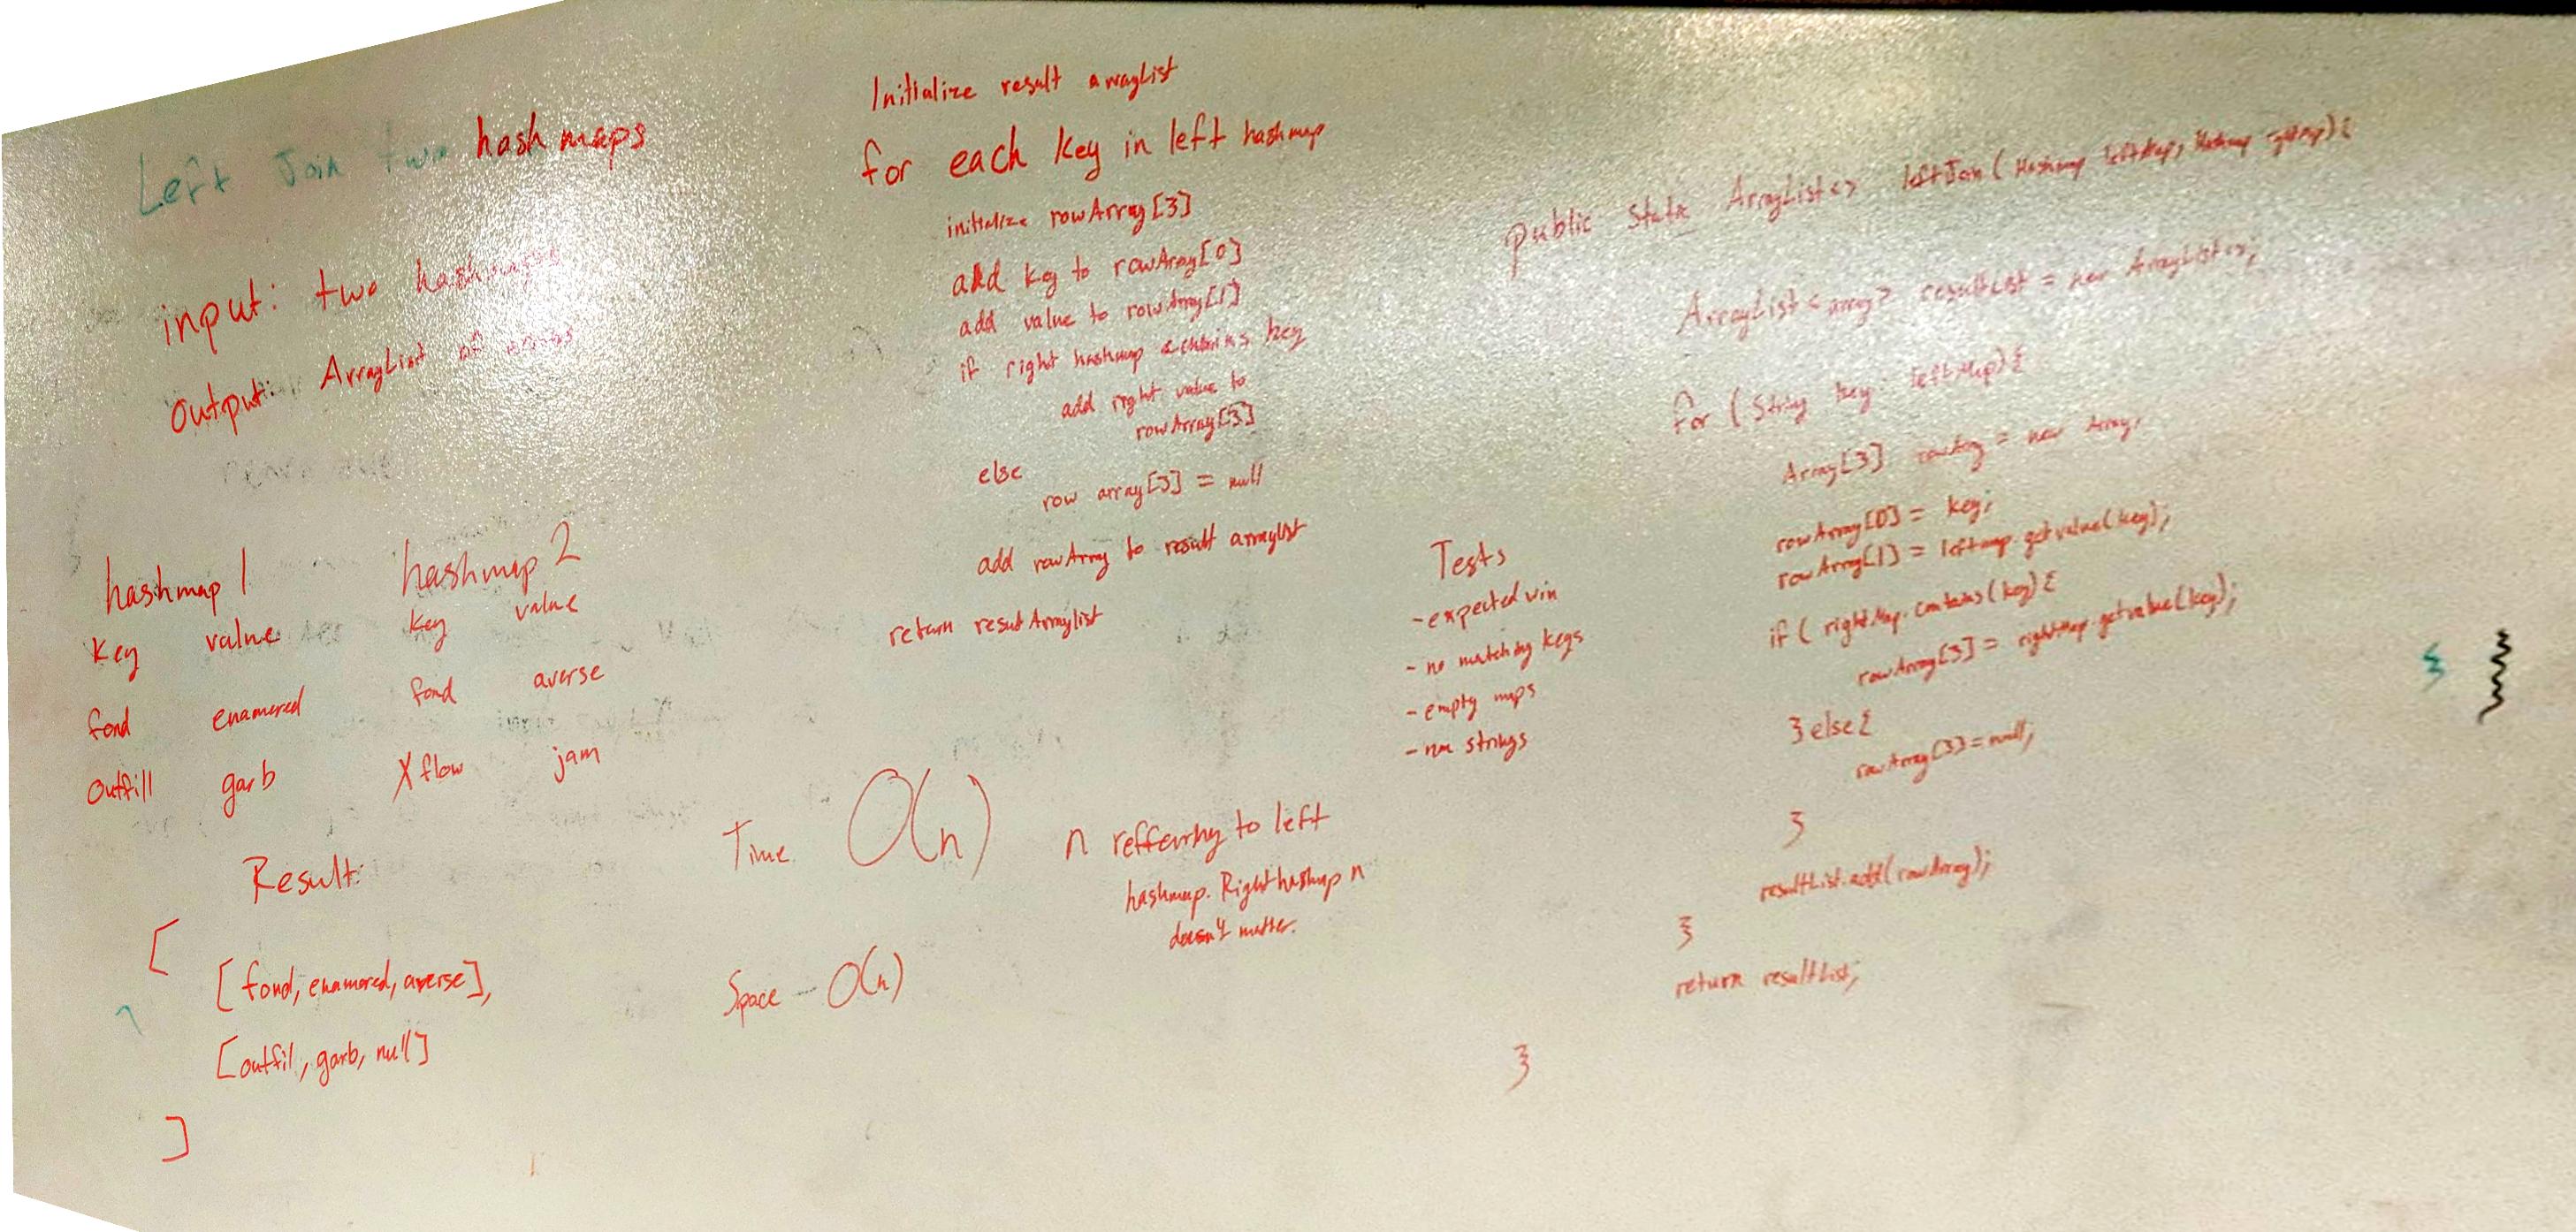 Left Join two hashmaps
input: two hashmaps
Output: ArrayList of arrays
hashmap 1 hashmap 2
Key value key value
fond enamored fond averse
Outfill garb X flow jam
Result:
[
[fond, enamored, averse],
[outfil, garb, null]
]
Initialize result arraylist
for each key in left hashmap
initialize rowArray[3]
add key to rowArray[0]
add value to rowArray[1]
if right hashmap contains key
add right value to
rowArray[3]
else
row array[3] = null
add rowArray to result arraylist
return resutArraylist
Time O(n) n refferring to left
hashmap. Right hashmap n
doesn't matter.
Space - O(n)
Tests
- expected win
- no matching keys
- empty maps
- non strings
public static ArrayList<> leftJoin( Hashmap leftMap, Hashmap rightMap){
ArrayList<array> resultList = new ArrayList<>;
for ( String key: leftMap){
Array[3] rowArray = new Array;
rowArray[0] = key;
rowArray[1] = leftmap.getvalue(key);
if ( rightMap.contains(key){
rowArray[3] = rightMap.getvalue(key);
}else{
rowArray[3]=null;
}
resultList.add(rowArray);
}
return resultList;
}